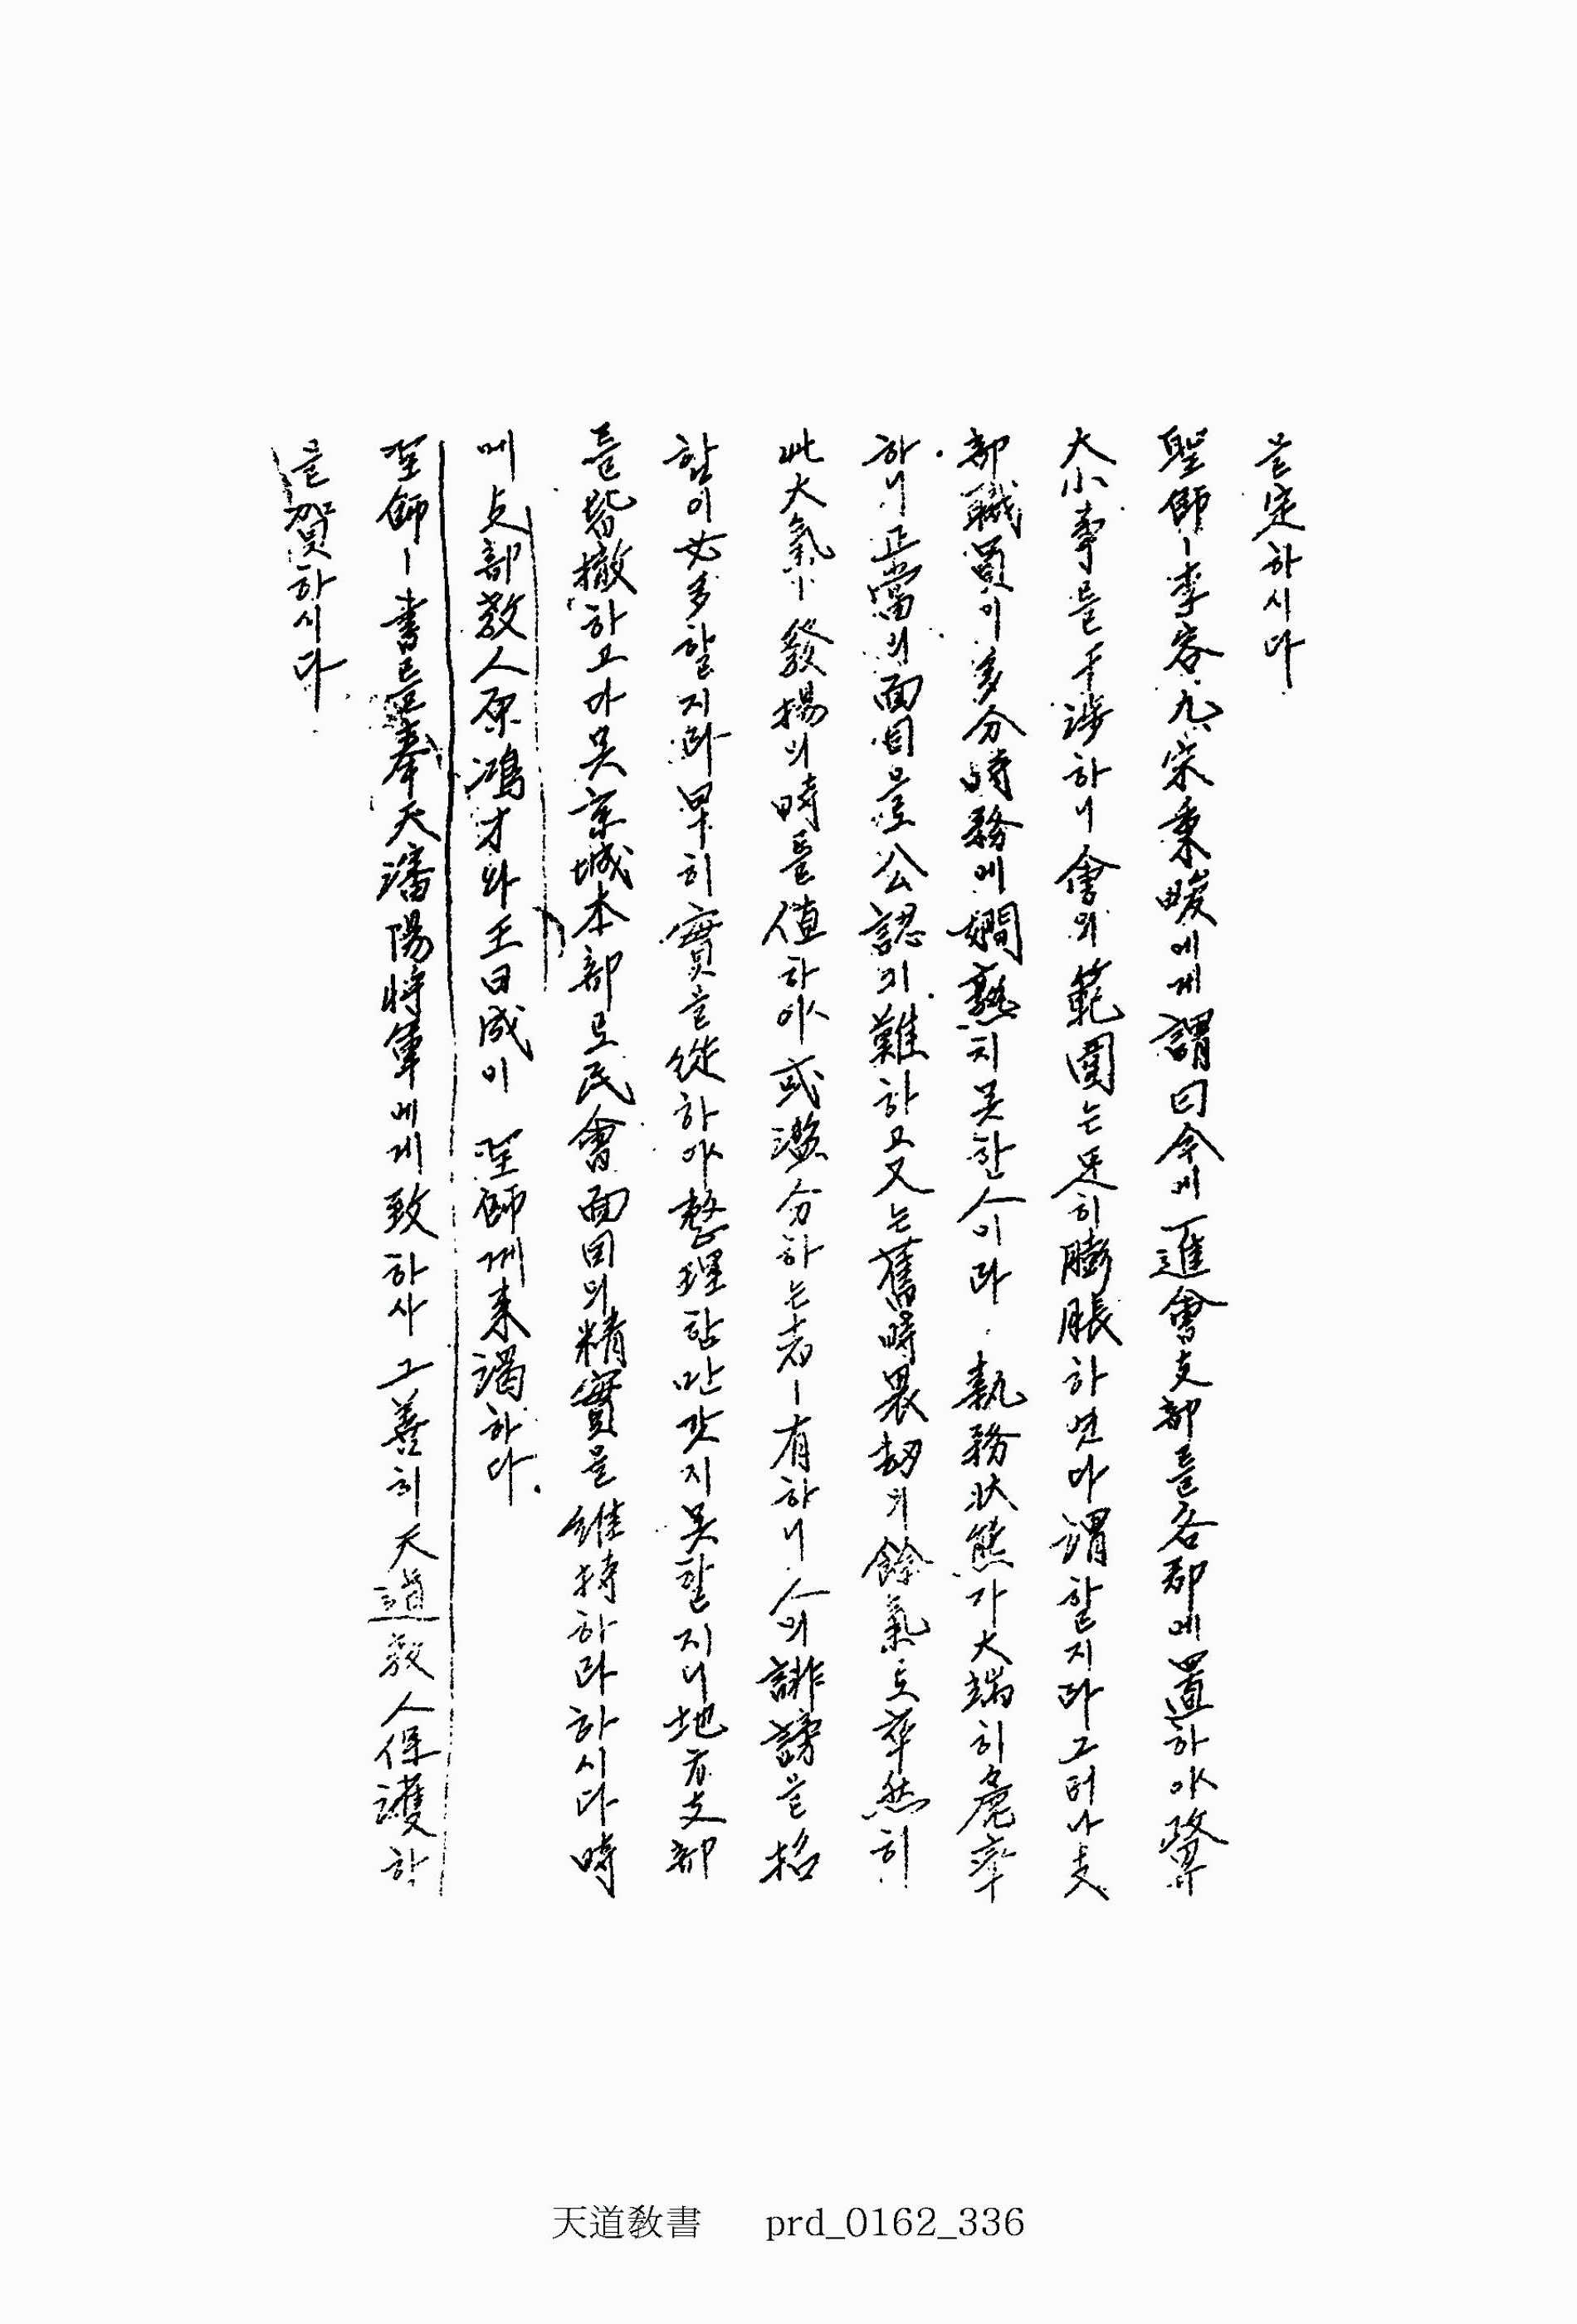 을定하시다
聖師ㅣ李容九、宋秉畯에게謂曰今에一進會支部를各郡에置하야
大小事를干涉하니會의範圍는足히膨脹하얏다謂할지라그러나支
部職員이多分時務에嫺熟치못한人이라執務狀態가大端히麁率
하니正當의面目으로公認키難하고又는舊時畏劫의餘氣로卒然히
此大氣ㅣ發揚의時를値하야或濫分하는者ㅣ有하니人의誹謗을招
함이必多할지라早히實을從하야整理함만갓지못할지니地方支部
를皆撤하고다못京城本部로民會面目의精實을維持하라하시다時
에支部敎人原鴻才와王日成이 聖師께來謁하다.
聖師ㅣ書를奉天瀋陽將軍에게致하사그善히天道敎人保護함
을賀하시다
天道敎書 prd_0162_336